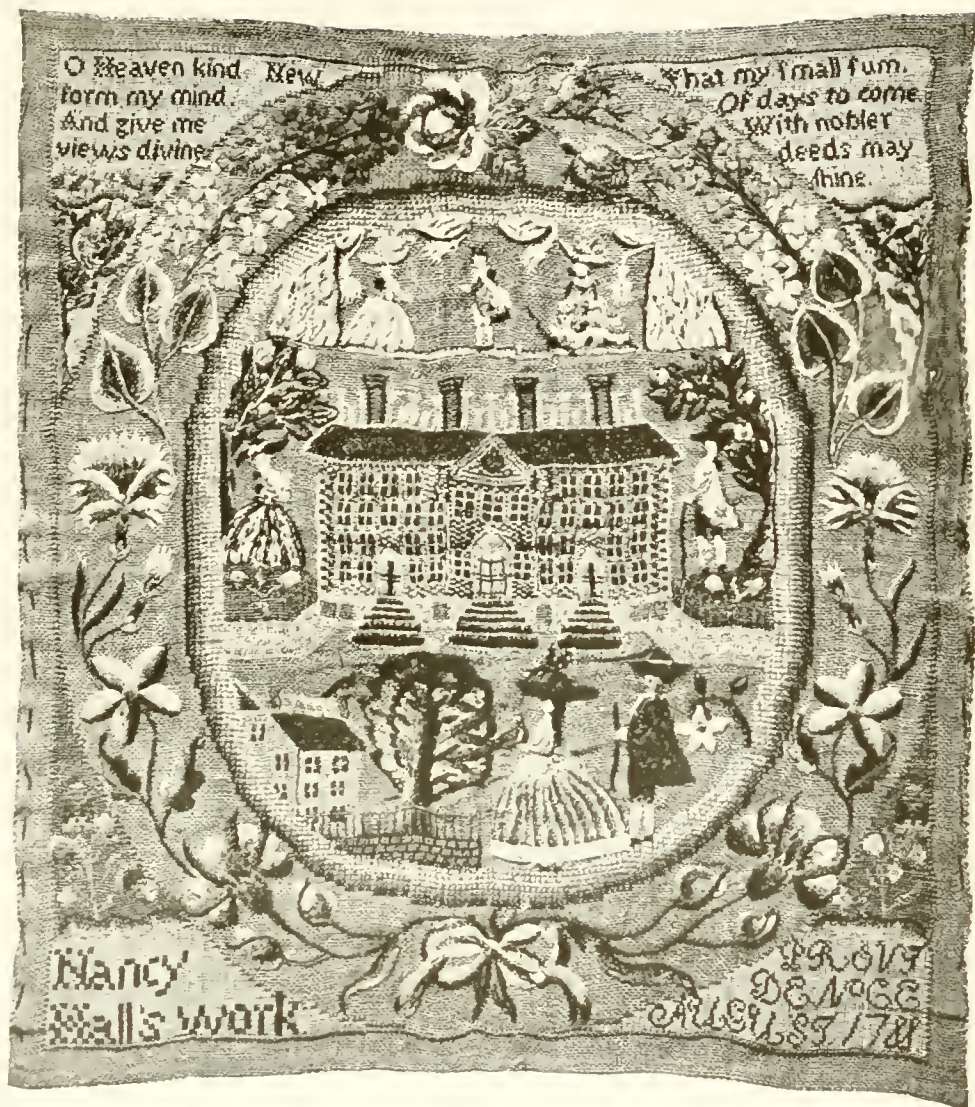 O Heaven kind. New
form my mind.
And give me
views divine
That my ſmall ſum.
Of days to come.
With nobler
deeds may
ſhine.
Nancy
Hall's work
PROVI
DENCE
AUGUST 1788